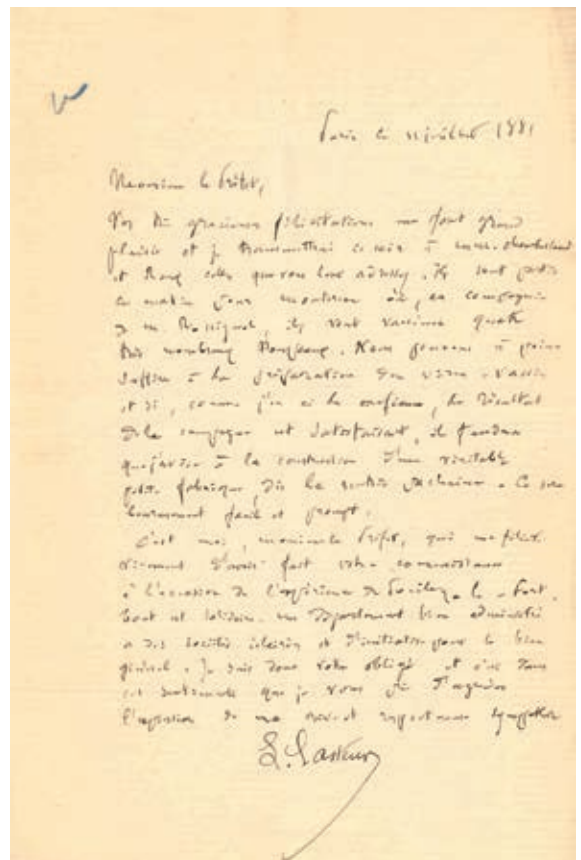 Paris le juillet 1881
Monsieur le Préfet,
Vos très gracieuses félicitations me font grand
plaisir et je transmettrai ce soir à MM. Chamberland
et Roux celles que vous leur adressez. Ils sont partis
ce matin pour où, en compagnie
de M. Rossignol, ils vont vacciner quatre
très nombreux troupeaux. Nous pouvons à peine
suffire à la préparation du virus-vaccin
et si, comme j'en ai la confiance, le résultat
de la campagne est satisfaisant, il faudra
que j'avise à la construction d'une véritable
petite fabrique, dès la rentrée prochaine. Ce sera
heureusement facile et prompt.
C'est moi, monsieur le Préfet, qui me félicite
vivement d'avoir fait votre connaissance
à l'occasion de l'expérience de Pouilly-le-Fort.
Tout est solidaire. Un département bien administré
a des sociétés éclairées et d'initiative pour le bien
général. Je suis donc votre obligé et c'est dans
ces sentiments que je vous prie d'agréer
l'expression de ma vive et respectueuse sympathie
L. Pasteur